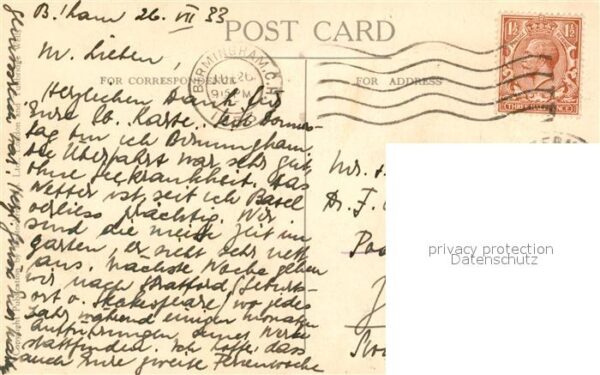 B.'ham 26. VII 33
POST CARD
M. Lieben,
FOR CORRESPONDENCE
FOR ADDRESS
BIRMINGHAM
26
9 15 PM
1½ 1½
THREE HALFPENCE
Herzlichen Dank für
Eure lb. Karte. Seit Donners-
tag bin ich Birmingham
die Überfahrt war sehr gut
ohne Seekrankheit. Das
Wetter ist, seit ich Basel
verliess prächtig. Wir
sind die meiste Zeit im
Garten, er sieht sehr nett
aus. Nächste Woche gehen
wir nach Stratford (Geburts-
ort v. Shakespeare) wo jedes
Jahr während einigen Monaten
Aufführungen seiner Werke
stattfinden. Ich hoffe, dass
auch Eure zweite Ferienwoche
Mr.
Dr. F.
privacy protection
Datenschutz